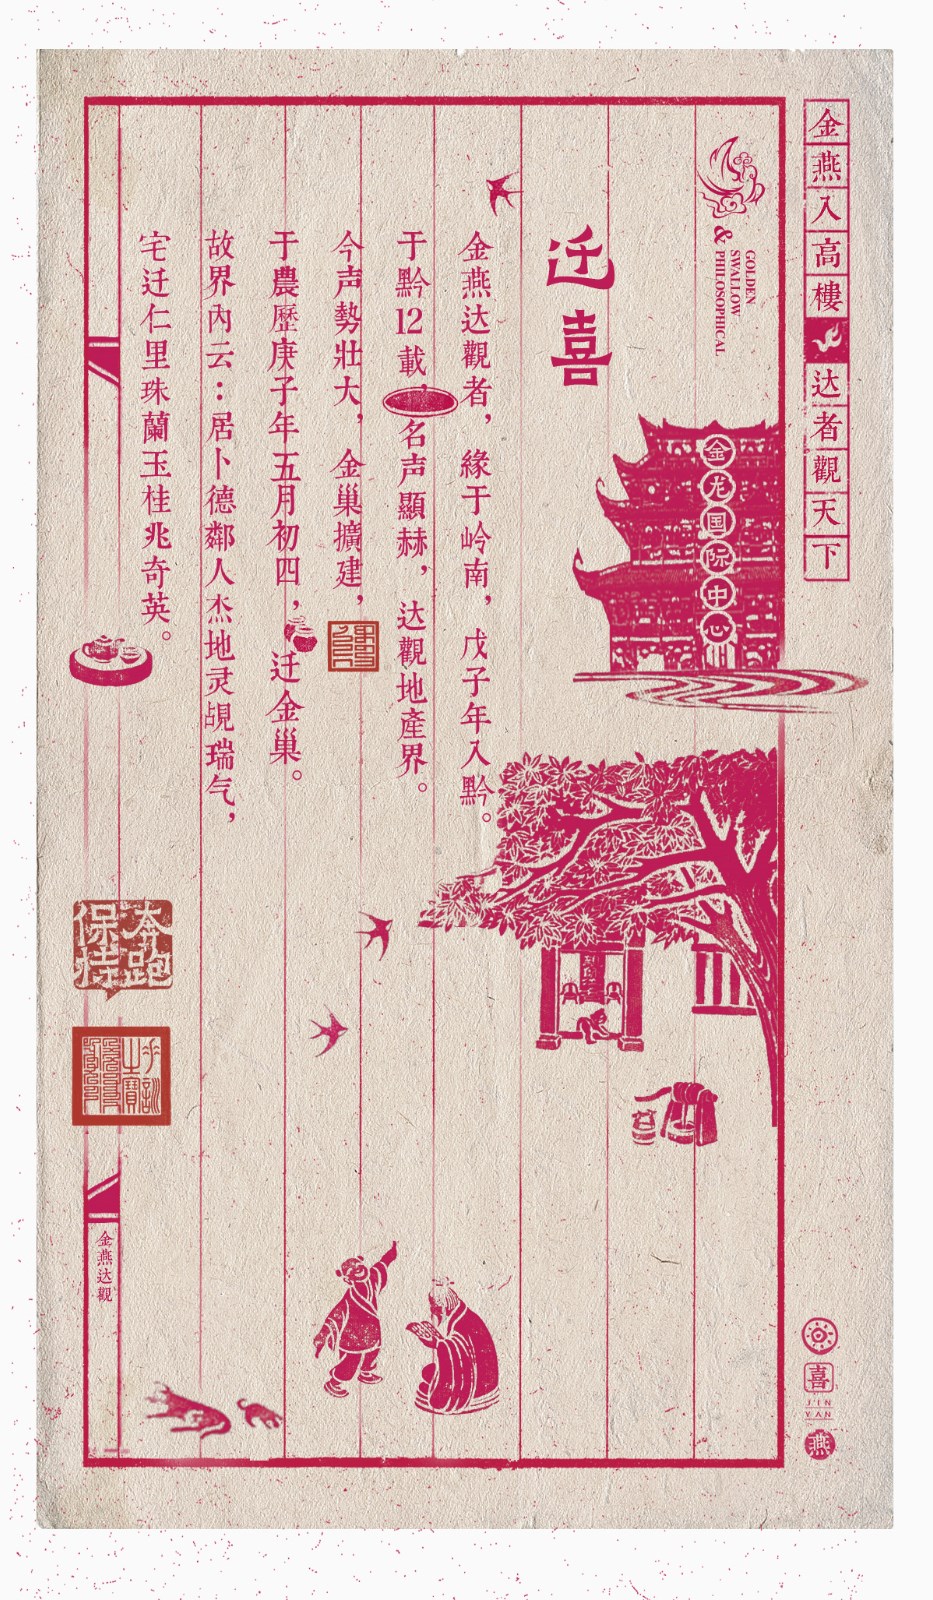 金燕入高樓
达者觀天下
GOLDEN
SWALLOW
& PHILOSOPHICAL
迁喜
金龙国际中心
金燕达觀者，緣于岭南，戊子年入黔。
于黔12載，名声顯赫，达觀地產界。
今声勢壯大，金巢擴建，
于農歷庚子年五月初四，迁金巢。
故界內云：居卜德鄰人杰地灵觇瑞气，
宅迁仁里珠蘭玉桂兆奇英。
奔跑
保持
金燕达觀
喜
JIN
YAN
燕